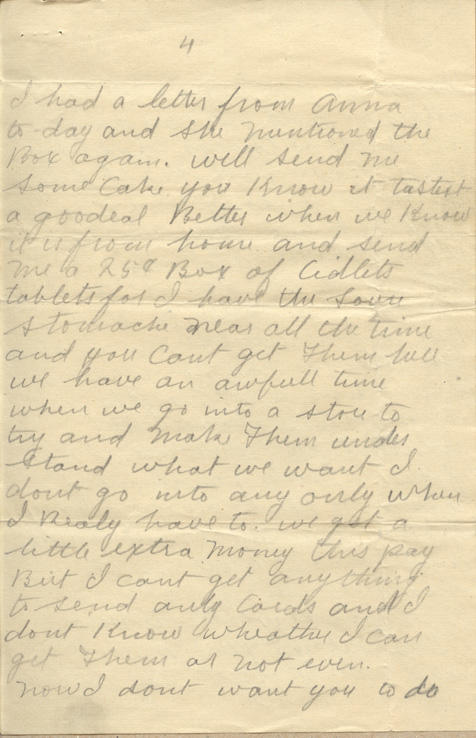 4
I had a letter from Anna
to-day and she mentioned the
Box again. will send me
some Cake you Know it tastest
a goodeal Better when we Know
it is from home and send
me a 25¢ Box of Cidlets
tablets for I have the sour
stomache near all the time
and you Cant get Them hell
we have an awfull time
when we go into a store to
try and Make Them under
stand what we want I
dont go into any only when
I Realy have to. we get a
little extra Money this pay
But I cant get anything
to send only Cards and I
dont Know wheather I can
get Them or not even.
now I dont want you to do